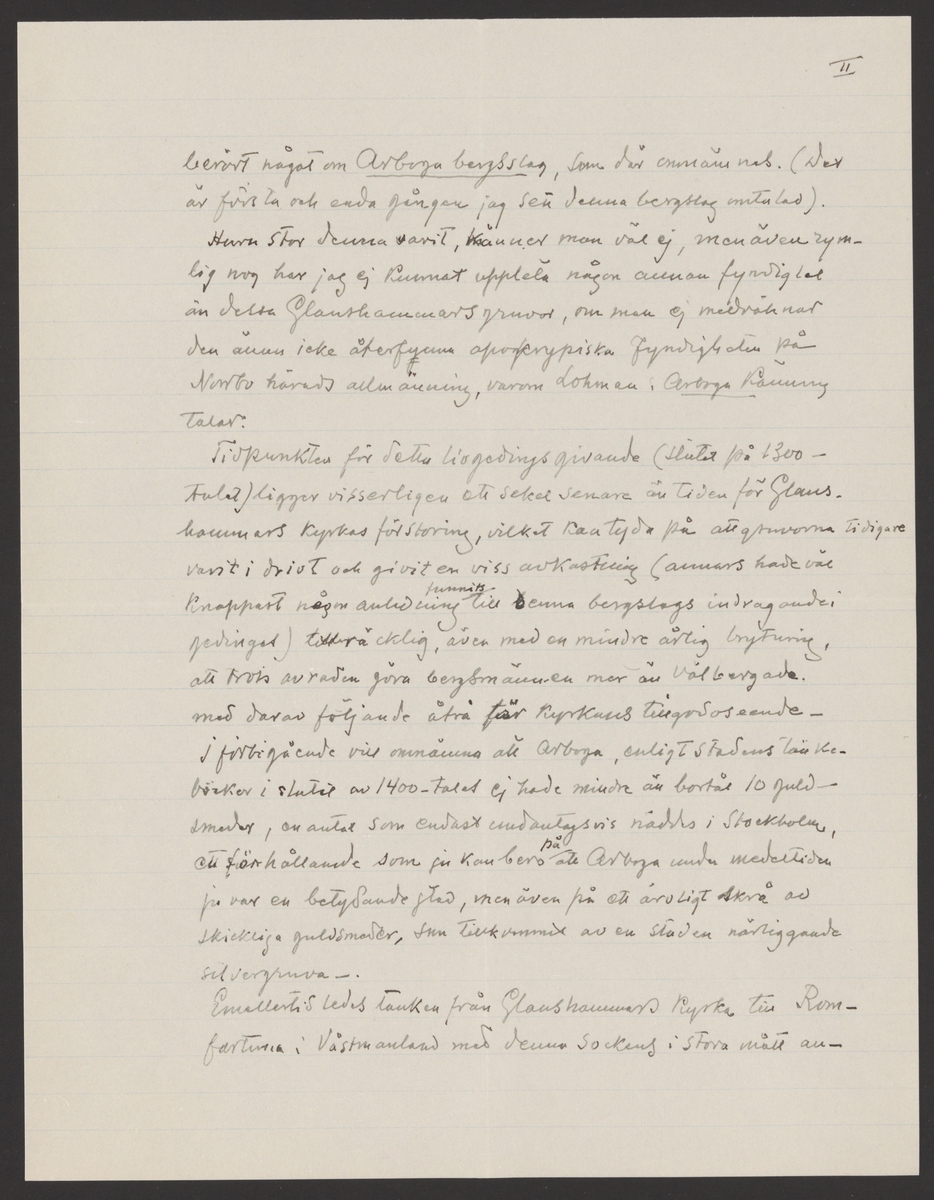 II
berört något om Arboga bergsslag, som där omnämnes. (Det
är första och enda gången jag sett denna bergslag omtalad).
Huru stor denna varit, känner man väl ej, men även rym-
lig nog har jag ej kunnat uppleta någon annan fyndighet
än dessa Glanshammars gruvor, om man ej medräknar
den ännu icke återfunna apokrypiska fyndigheten på
Norrbo härads allmänning, varom Lohman i Arboga Känning
talar.
Tidpunkten för detta livgedingsgivande (slutet på 1300-
talet) ligger visserligen ett sekel senare än tiden för Glans-
hammars Kyrkas förstoring, vilket kan tyda på att gruvorna tidigare
varit i drivt och givit en viss avkastning (annars hade väl
funnits
knappast någon anledning till denna bergslags indragande i
gedinget) tillräcklig, även med en mindre årlig brytning,
att trots avraden göra bergsmännen mer än välbergade.
med därav följande åtrå för kyrkans tillgodoseende -
I förbigående vill omnämna att Arboga, enligt stadens tänke-
böcker i slutet av 1400-talet ej hade mindre än bortåt 10 guld-
smeder, en antal som endast undantagsvis nåddes i Stockholm,
på
ett förhållande som ju kan bero att Arboga under medeltiden
ju var en betydande stad, men även på ett ärvligt skrå av
skickliga guldsmeder, som tillkommit av en staden närliggande
silvergruva -.
Emellertid ledes tanken från Glanshammars Kyrka till Rom-
fartuna i Västmanland med denna sockens i stora mått an-